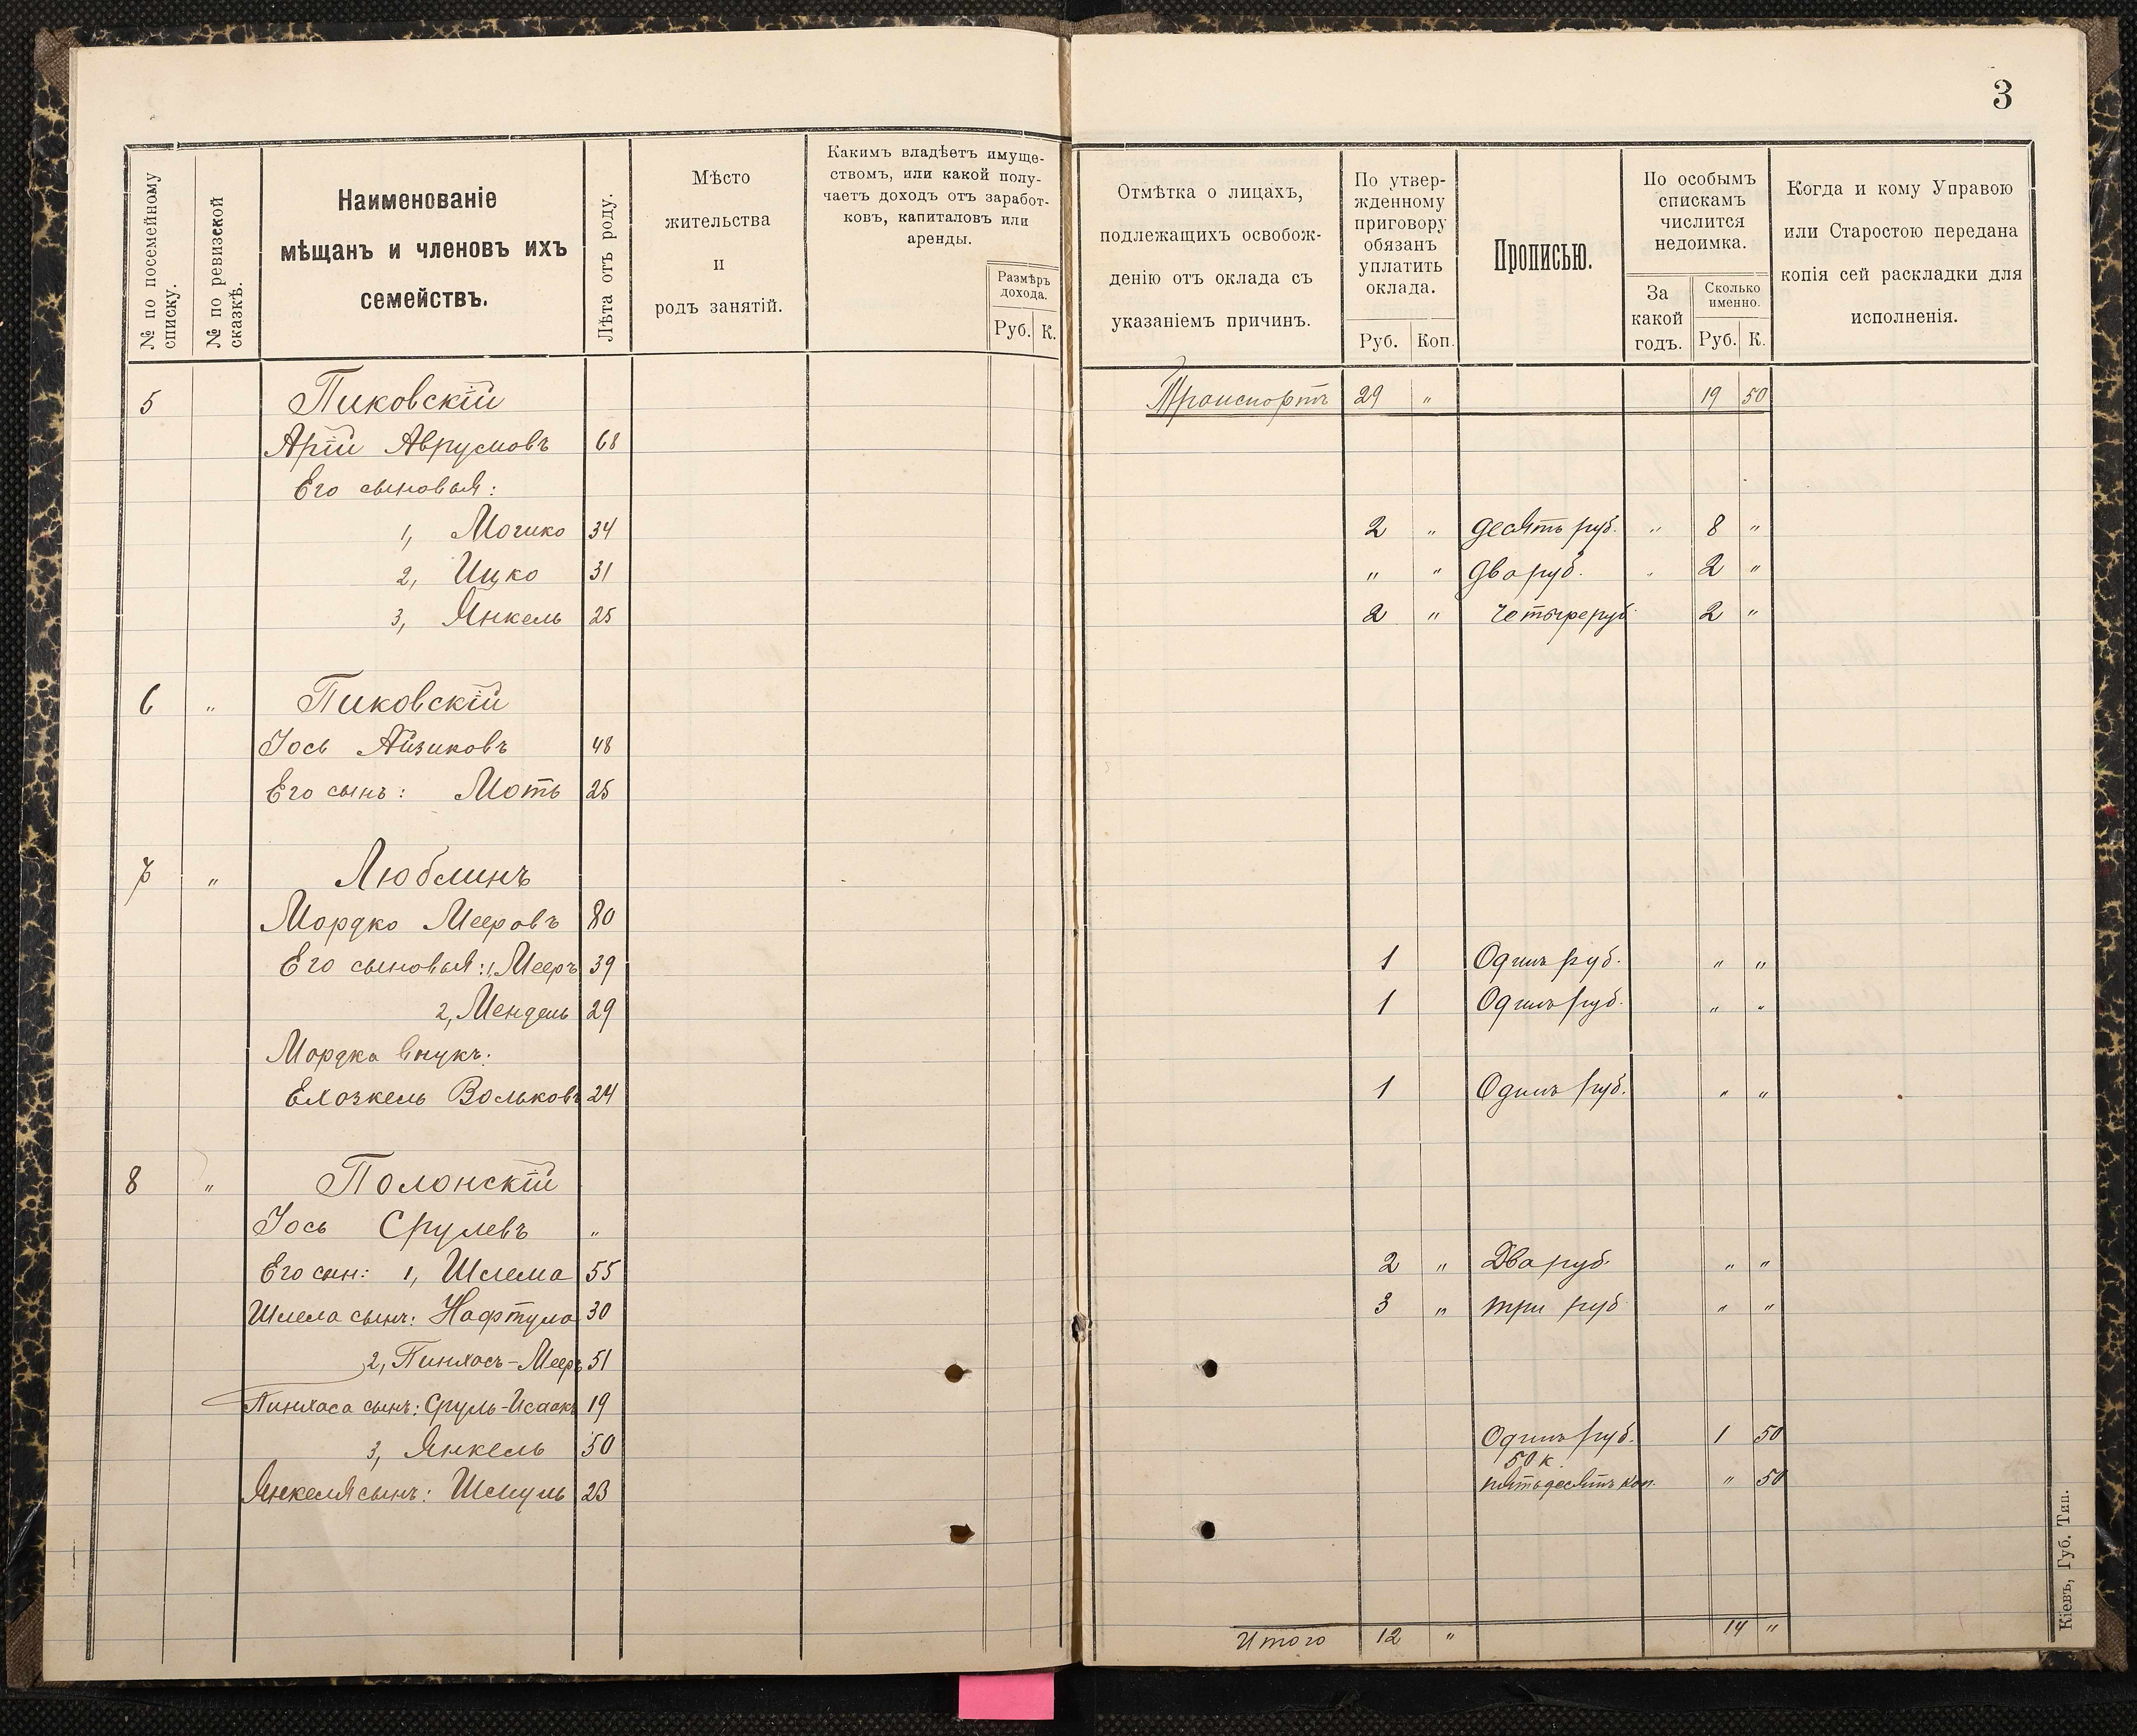 3
№ по посемейному списку.
№ по ревизской сказкѣ.
Наименованіе
мѣщанъ и членовъ ихъ
семействъ.
Лѣта отъ роду.
Мѣсто
жительства
и
родъ занятій.
Какимъ владѣетъ имуще-
ствомъ, или какой полу-
чаетъ доходъ отъ заработ-
ковъ, капиталовъ или
аренды.
Размѣръ
дохода.
Руб. К.
Отмѣтка о лицахъ,
подлежащихъ освобож-
денію отъ оклада съ
указаніемъ причинъ.
По утвер-
жденному
приговору
обязанъ
уплатить
оклада.
Руб. Коп.
Прописью.
По особымъ
спискамъ
числится
недоимка.
За
какой
годъ.
Сколько
именно.
Руб. К.
Когда и кому Управою
или Старостою передана
копія сей раскладки для
исполненія.
5 Пиковскій Транспортъ 29 " 19 50
Арій Аврумовъ 68
Его сыновья:
1, Мошко 34 2 " десять руб. " 8 "
2, Ицко 31 " " два руб. " 2 "
3, Янкель 25 2 " четыре руб 2 "
6 " Пиковскій
Іось Айзиковъ 48
Его сынъ: Моть 25
7 " Люблинъ
Мордко Мееровъ 80
Его сыновья: 1, Мееръ 39 1 Одинъ руб. " "
2, Мендель 29 1 Одинъ руб. " "
Мордка внукъ:
Ехозкель Вольковъ 24 1 Одинъ руб. " "
8 " Полонскій
Іось Срулевъ "
Его сын: 1, Шлема 55 2 " Два руб. " "
Шлема сынъ: Нафтула 30 3 " три руб " "
2, Пинхасъ-Мееръ 51
Пинхаса сынъ: Сруль-Исаакъ 19
3, Янкель 50 Одинъ руб. 1 50
50 к.
Янкеля сынъ: Шмуль 23 пятьдесятъ коп. " 50
Итого 12 " 14 "
Кіевъ, Губ. Тип.